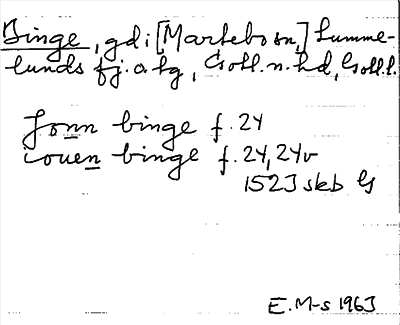 Binge, gd i [Martebo sn,] Lumme-
lunds fj. a tg, Gotl. n. hd, Gotl. l.
Jonn binge f. 24
iouen binge f. 24, 24v
1523 skb G
E. M-s 1963